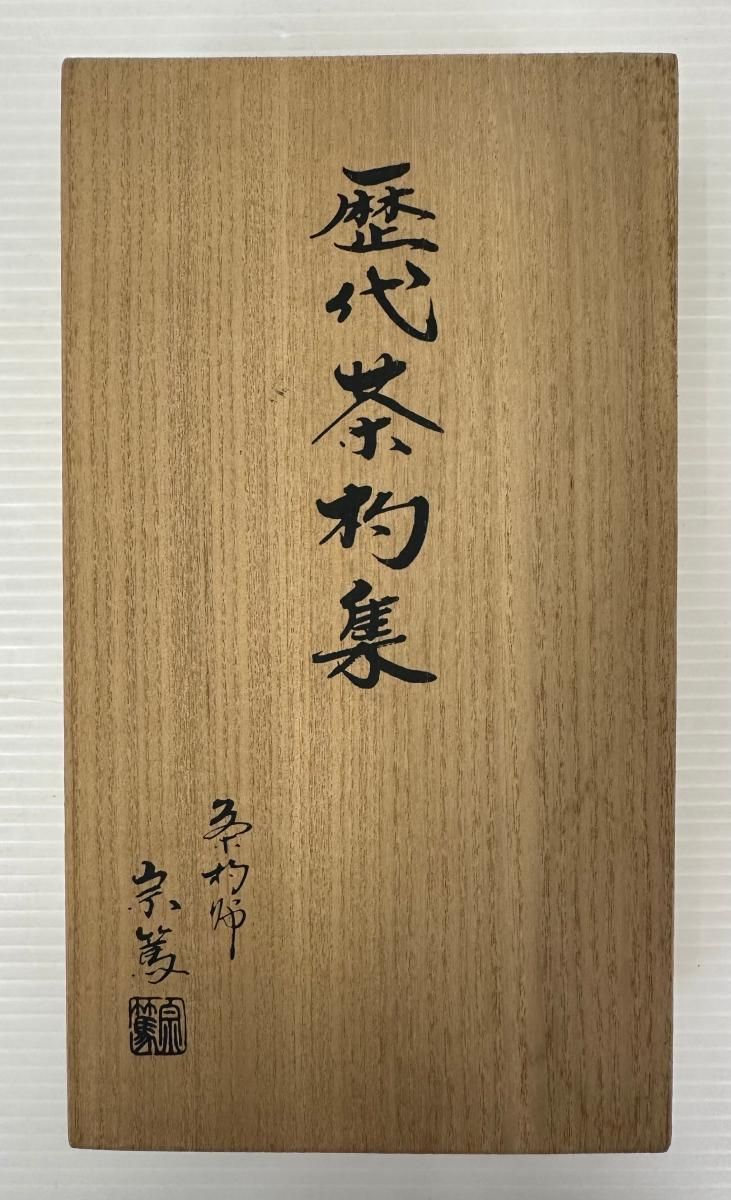 歴代茶杓集
茶杓師
宗篤
宗篤